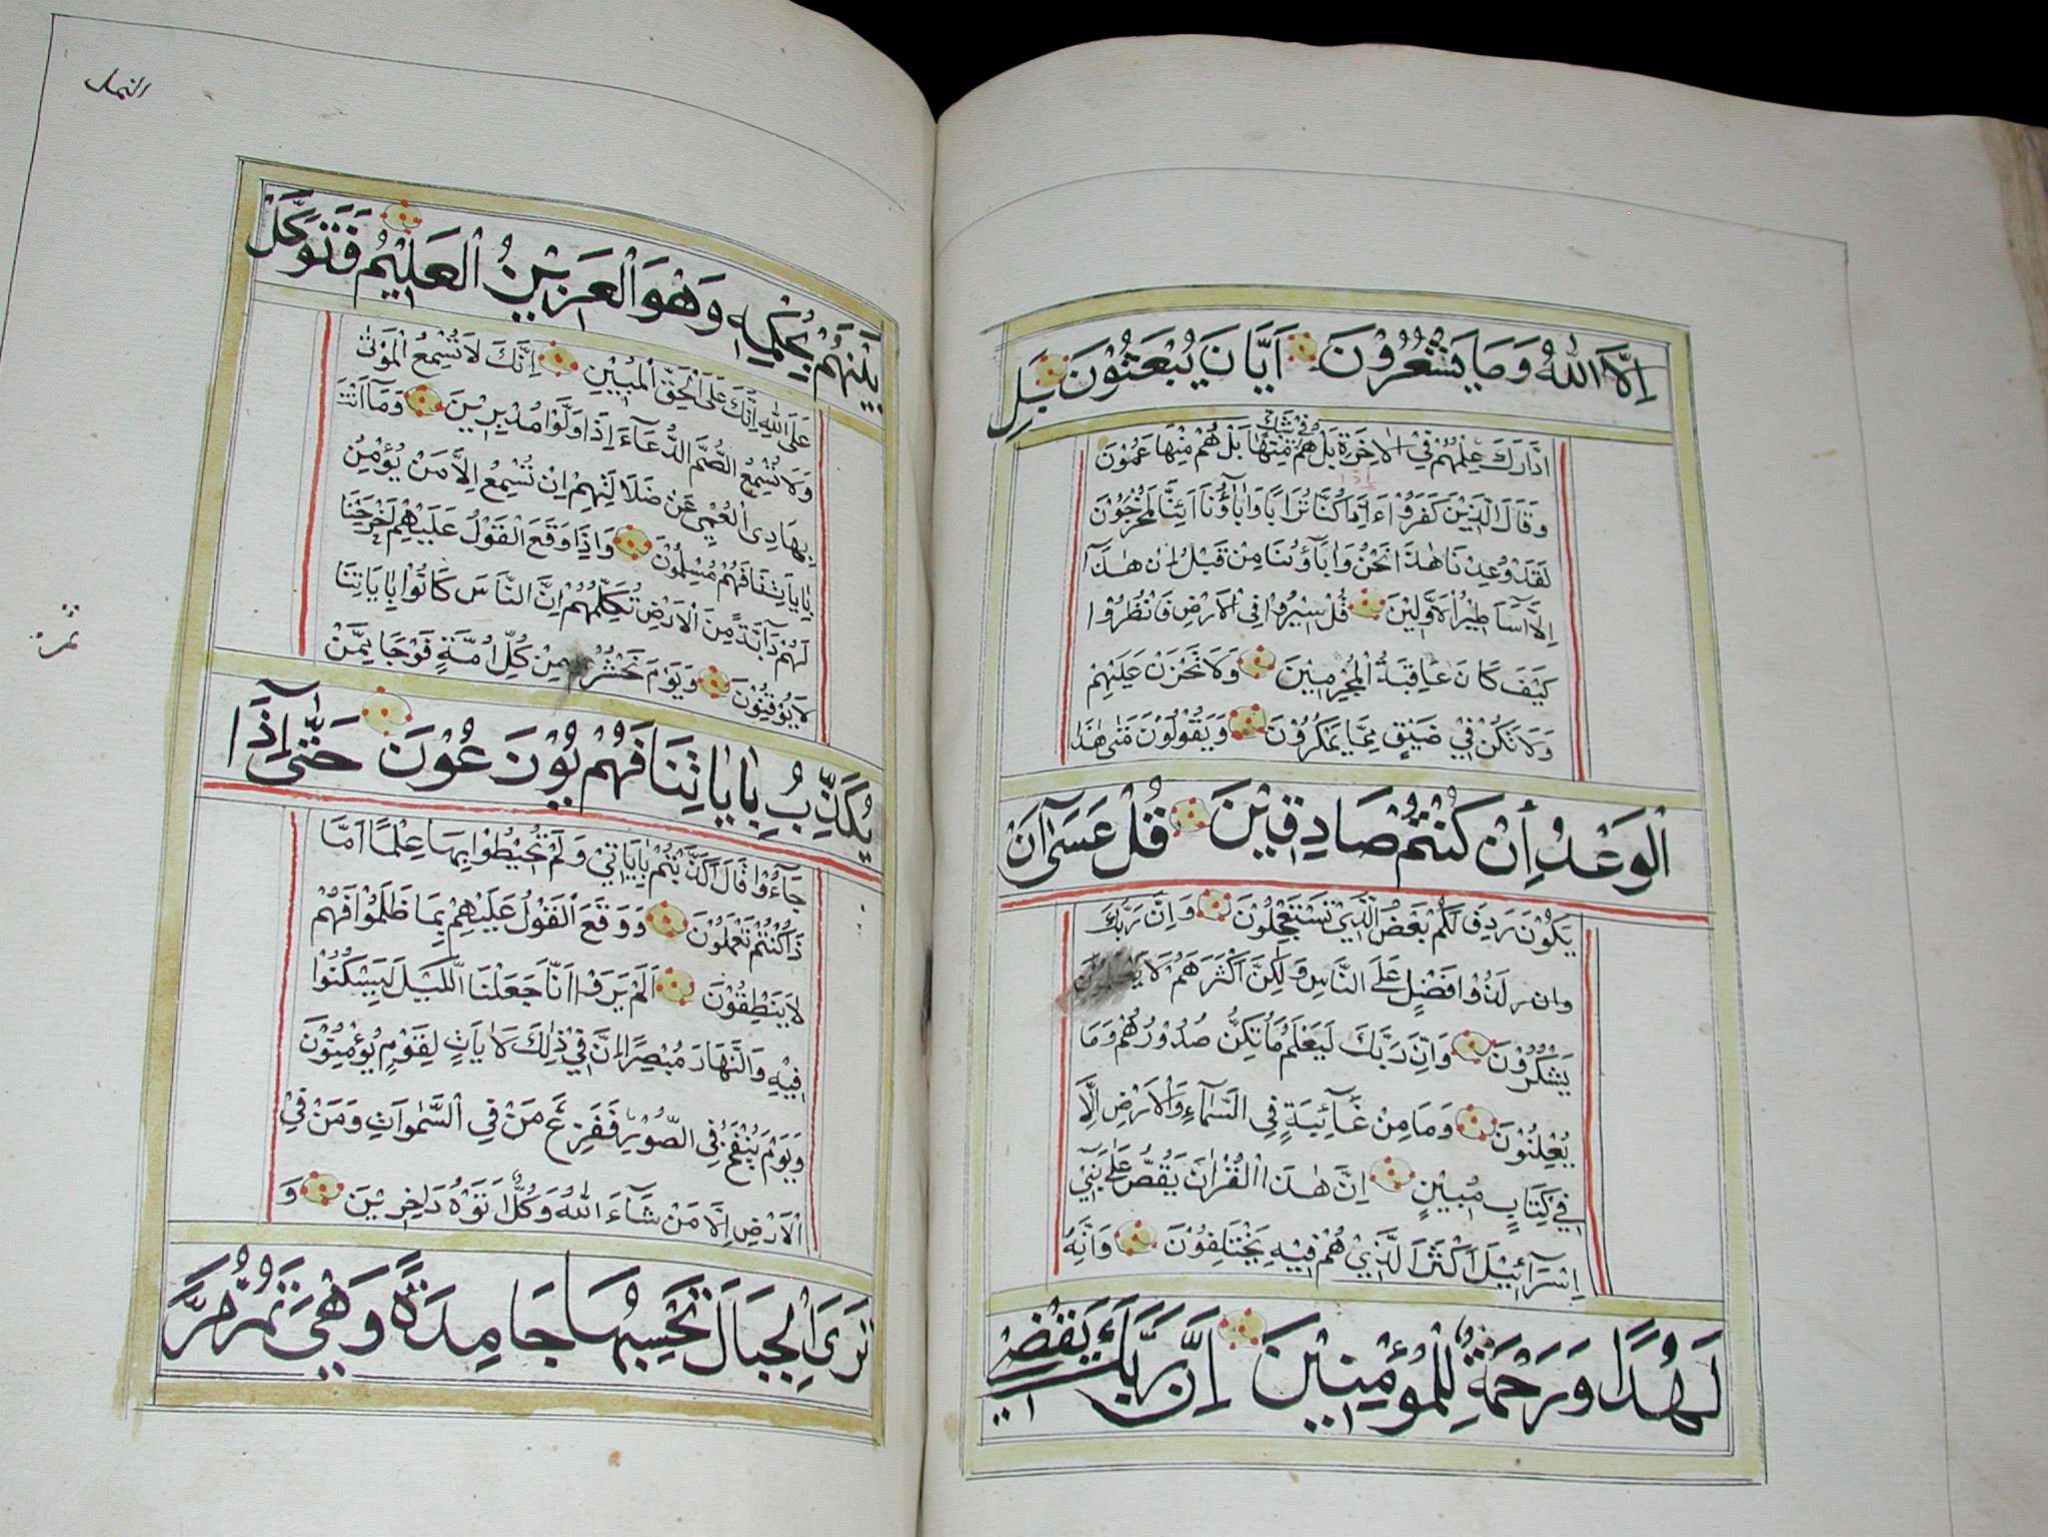 اِلَّا اللّٰهُ وَمَا يَشْعُرُوْنَ اَيَّانَ يُبْعَثُوْنَ بَلِ
ادَّارَكَ عِلْمُهُمْ فِي الْاٰخِرَةِ بَلْ هُمْ فِيْ شَكٍّ مِنْهَا بَلْ هُمْ مِنْهَا عَمُوْنَ
وَقَالَ الَّذِيْنَ كَفَرُوْا ءَاِذَا كُنَّا تُرَابًا وَاٰبَآؤُنَا اَئِنَّا لَمُخْرَجُوْنَ
لَقَدْ وُعِدْنَا هٰذَا نَحْنُ وَاٰبَآؤُنَا مِنْ قَبْلُ اِنْ هٰذَآ
اِلَّآ اَسَاطِيْرُ الْاَوَّلِيْنَ قُلْ سِيْرُوْا فِي الْاَرْضِ فَانْظُرُوْا
كَيْفَ كَانَ عَاقِبَةُ الْمُجْرِمِيْنَ وَلَا تَحْزَنْ عَلَيْهِمْ
وَلَا تَكُنْ فِيْ ضَيْقٍ مِمَّا يَمْكُرُوْنَ وَيَقُوْلُوْنَ مَتٰى هٰذَا
الْوَعْدُ اِنْ كُنْتُمْ صَادِقِيْنَ قُلْ عَسٰٓى اَنْ
يَكُوْنَ رَدِفَ لَكُمْ بَعْضُ الَّذِيْ تَسْتَعْجِلُوْنَ وَاِنَّ رَبَّكَ
لَذُوْا فَضْلٍ عَلَى النَّاسِ وَلٰكِنَّ اَكْثَرَهُمْ لَا
يَشْكُرُوْنَ وَاِنَّ رَبَّكَ لَيَعْلَمُ مَا تُكِنُّ صُدُوْرُهُمْ وَمَا
يُعْلِنُوْنَ وَمَا مِنْ غَآئِبَةٍ فِي السَّمَآءِ وَالْاَرْضِ اِلَّا
فِيْ كِتَابٍ مُبِيْنٍ اِنَّ هٰذَا الْقُرْاٰنَ يَقُصُّ عَلٰى بَنِيْ
اِسْرَآئِيْلَ اَكْثَرَ الَّذِيْ هُمْ فِيْهِ يَخْتَلِفُوْنَ وَاِنَّهُ
لَهُدًا وَرَحْمَةٌ لِلْمُؤْمِنِيْنَ اِنَّ رَبَّكَ يَقْضِيْ
النمل
بَيْنَهُمْ بِحُكْمِهِ وَهُوَ الْعَزِيْزُ الْعَلِيْمُ فَتَوَكَّلْ
عَلَى اللّٰهِ اِنَّكَ عَلَى الْحَقِّ الْمُبِيْنِ اِنَّكَ لَا تُسْمِعُ الْمَوْتٰى
وَلَا تُسْمِعُ الصُّمَّ الدُّعَآءَ اِذَا وَلَّوْا مُدْبِرِيْنَ وَمَآ اَنْتَ
بِهَادِى الْعُمْىِ عَنْ ضَلَالَتِهِمْ اِنْ تُسْمِعُ اِلَّا مَنْ يُؤْمِنُ
بِاٰيَاتِنَا فَهُمْ مُسْلِمُوْنَ وَاِذَا وَقَعَ الْقَوْلُ عَلَيْهِمْ اَخْرَجْنَا
لَهُمْ دَآبَّةً مِنَ الْاَرْضِ تُكَلِّمُهُمْ اِنَّ النَّاسَ كَانُوْا بِاٰيَاتِنَا
لَا يُوْقِنُوْنَ وَيَوْمَ نَحْشُرُ مِنْ كُلِّ اُمَّةٍ فَوْجًا مِمَّنْ
يُكَذِّبُ بِاٰيَاتِنَا فَهُمْ يُوْزَعُوْنَ حَتّٰٓى اِذَا
جَآءُوْا قَالَ اَكَذَّبْتُمْ بِاٰيَاتِيْ وَلَمْ تُحِيْطُوْا بِهَا عِلْمًا اَمَّا
ذَا كُنْتُمْ تَعْمَلُوْنَ وَوَقَعَ الْقَوْلُ عَلَيْهِمْ بِمَا ظَلَمُوْا فَهُمْ
لَا يَنْطِقُوْنَ اَلَمْ يَرَوْا اَنَّا جَعَلْنَا الَّليْلَ لِيَسْكُنُوْا
فِيْهِ وَالنَّهَارَ مُبْصِرًا اِنَّ فِيْ ذٰلِكَ لَاٰيَاتٍ لِقَوْمٍ يُؤْمِنُوْنَ
وَيَوْمَ يُنْفَخُ فِي الصُّوْرِ فَفَزِعَ مَنْ فِي السَّمٰوَاتِ وَمَنْ فِي
الْاَرْضِ اِلَّا مَنْ شَآءَ اللّٰهُ وَكُلٌّ اَتَوْهُ دَاخِرِيْنَ وَ
تَرَى الْجِبَالَ تَحْسِبُهَا جَامِدَةً وَهْيَ تَمُرُّ مَرَّ